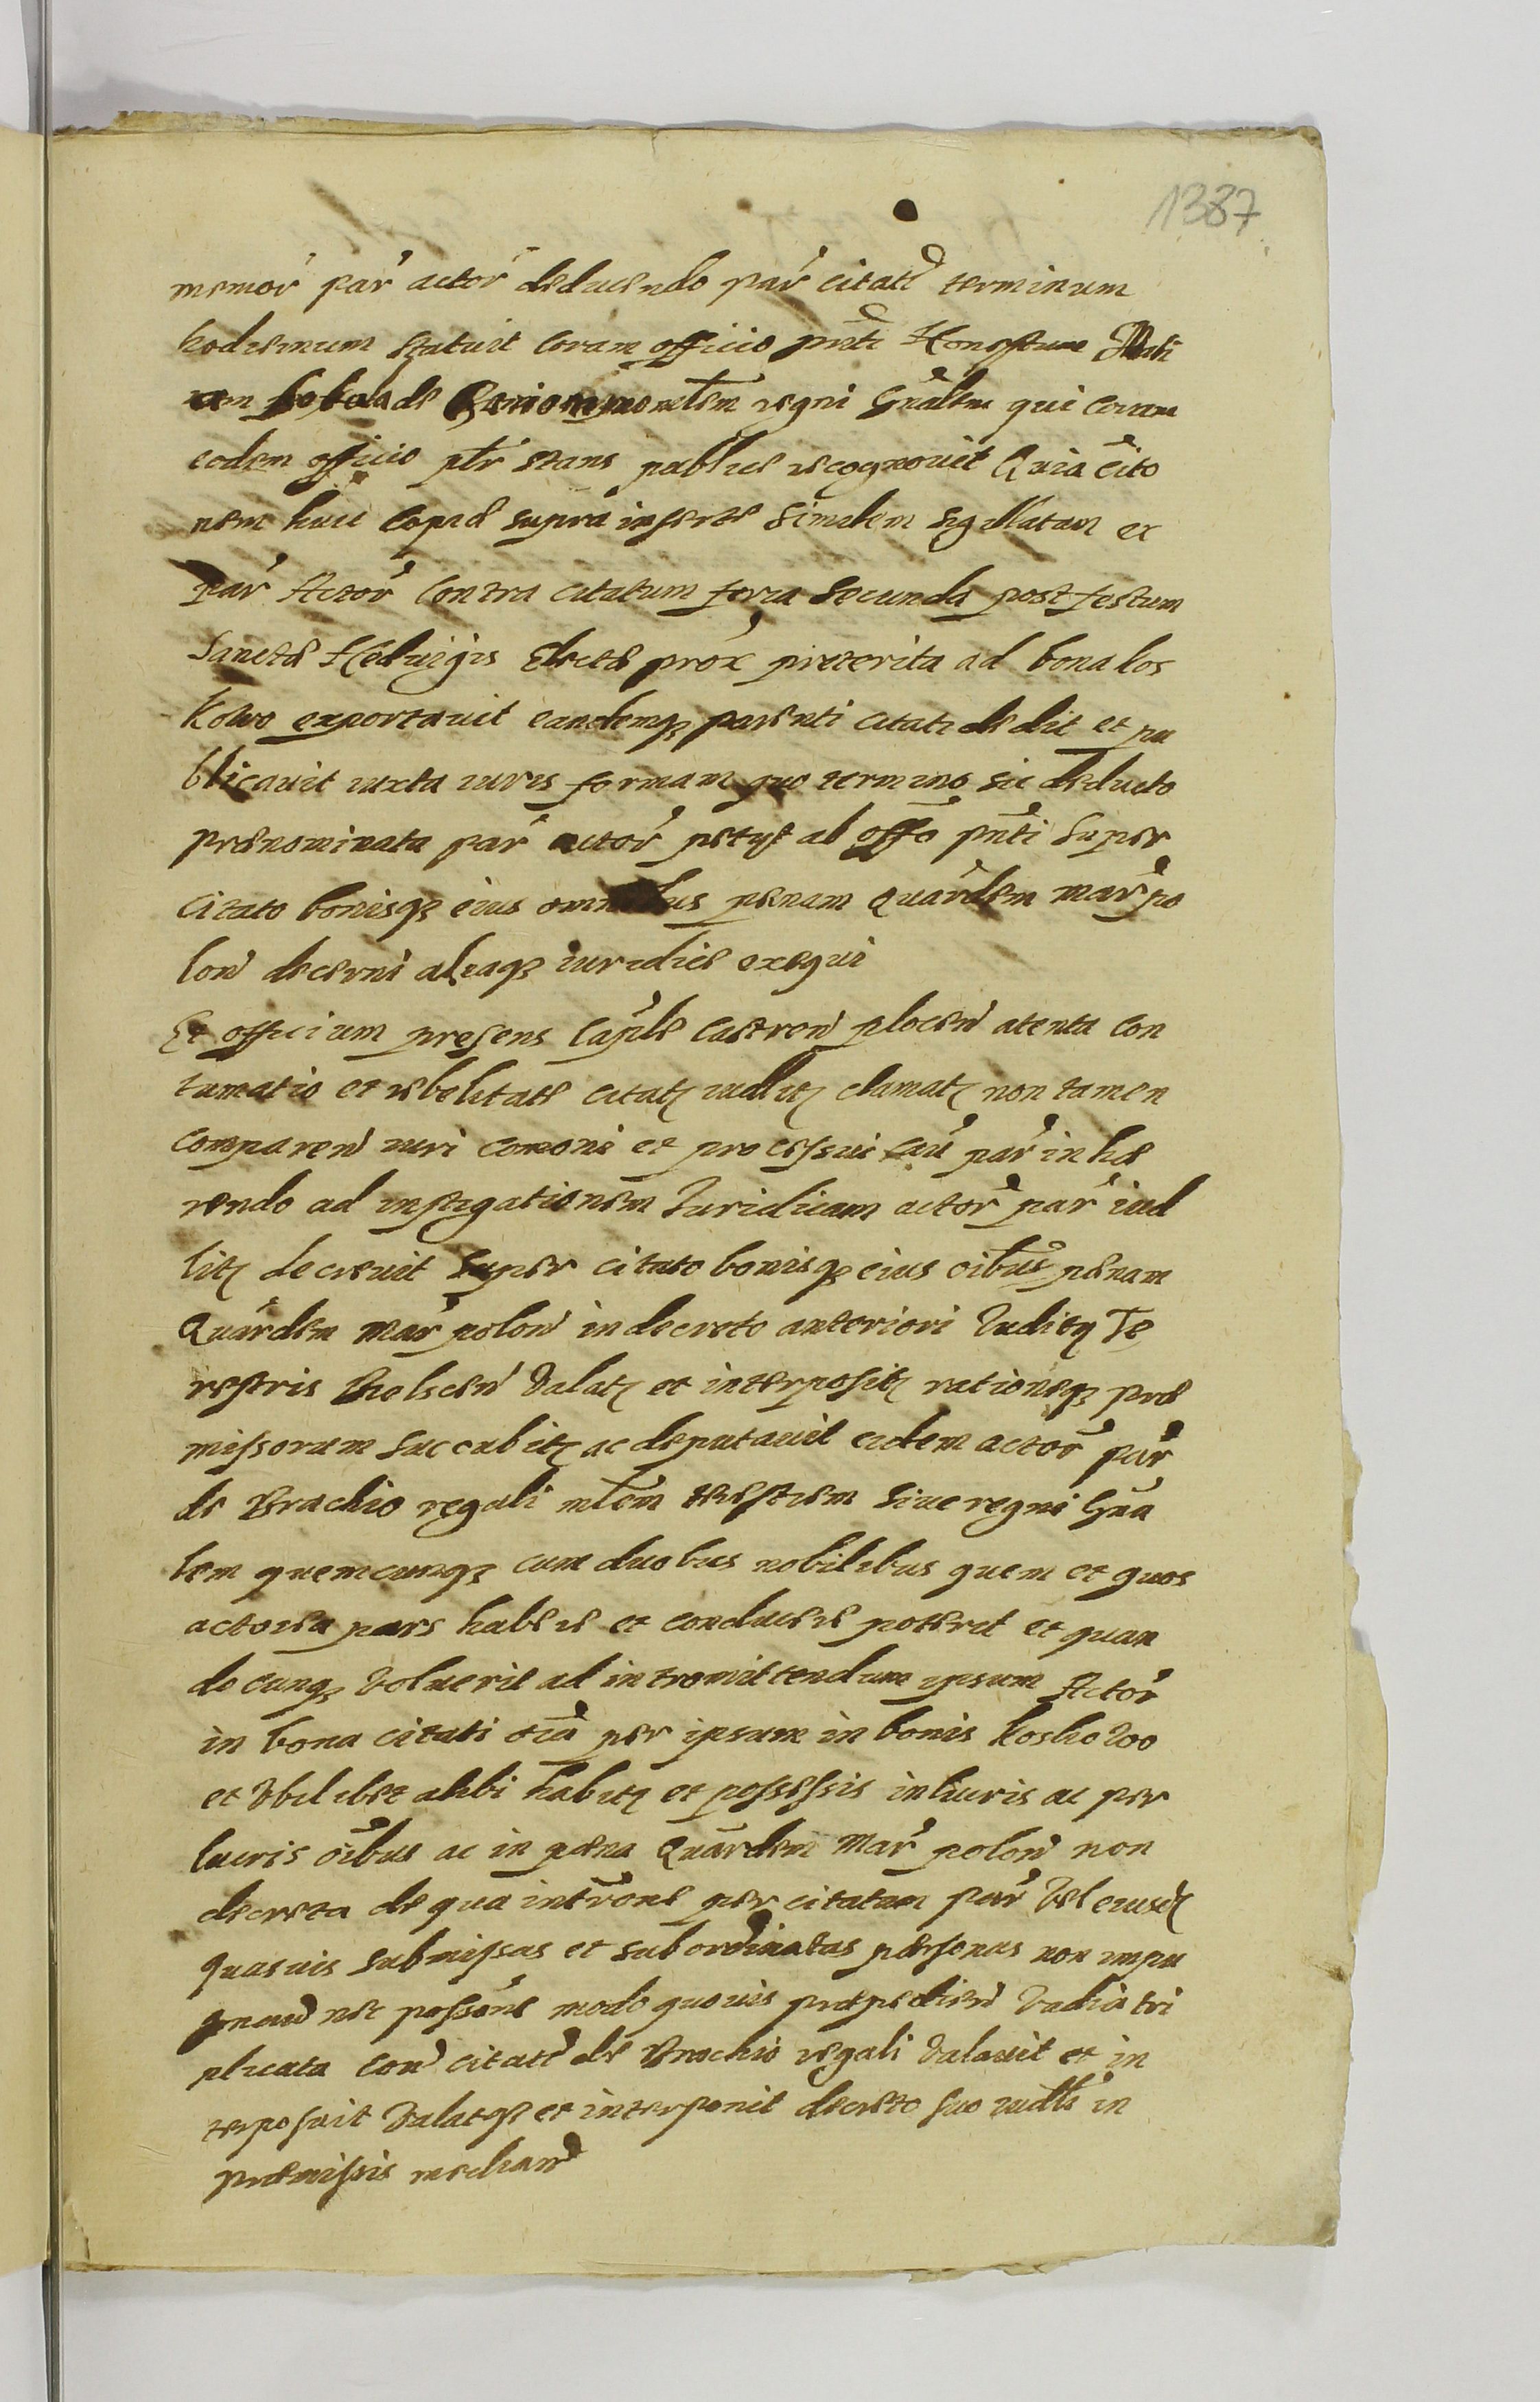 1387
memor par actor deducendo par citati terminum
hodiernum statuit Coram officio pnti Honestum
de mlem regni Gnalem qui coram
eodem officio plr stans publice recognovit Quia cito
nem huic Copiae supra insertae Similem sigillatam ex
par Actor Contra citatum feria Secunda post festum
Sanctae Hedvigis Electae prox preterita ad bona Kos
kowo exportavit eandemq parenti citati dedit et pu
blicavit iuxta iuris formam quo termino sic deducto
praenominata par actor petyt ab offo pnti Super
Citato bonisq eius omnibus paenam Quardem mar po
lon decerni aliaq iuridice exequi
Et officium presens Caple Castren plocen atenta Con
tumatio et rebelitate citati iudlitr clamati non tamen
Comparen iuri Comoni et processui Cau par inhae
rendo ad instigationem Iuridicam actor par iud
litr decrevit Super citato bonisq eius oibus paenam
Quardem mar polon in decreto anteriori Iudity Te
restris Bielscen valati et interpositi rationeq prae
missorum succubiti ac deputavit eidem actor par
de Brachio regali mlem terestrem sive regni Gna
lem quemcunq cum duobus nobilibus quem et quos
actorea pars habere et conducere poterit et quan
docunq voluerit ad intromittendum ipsum Actor
in bona citati oia per ipsum in bonis Koskowo
et ubilibet alibi habita et possessis in lucris ac per
lucris oibus ac in paena Quardem Mar polon non
decreta de qua introne per citatam par vel eiusd
quasvis submissas et subordinatas personas non impu
gnand nec possone modo quovis praepedien vadia tri
plicata Con citati de Brachio regali valavit et in
terposuit valatq et interponit decreto suo iudlr in
praemissis median